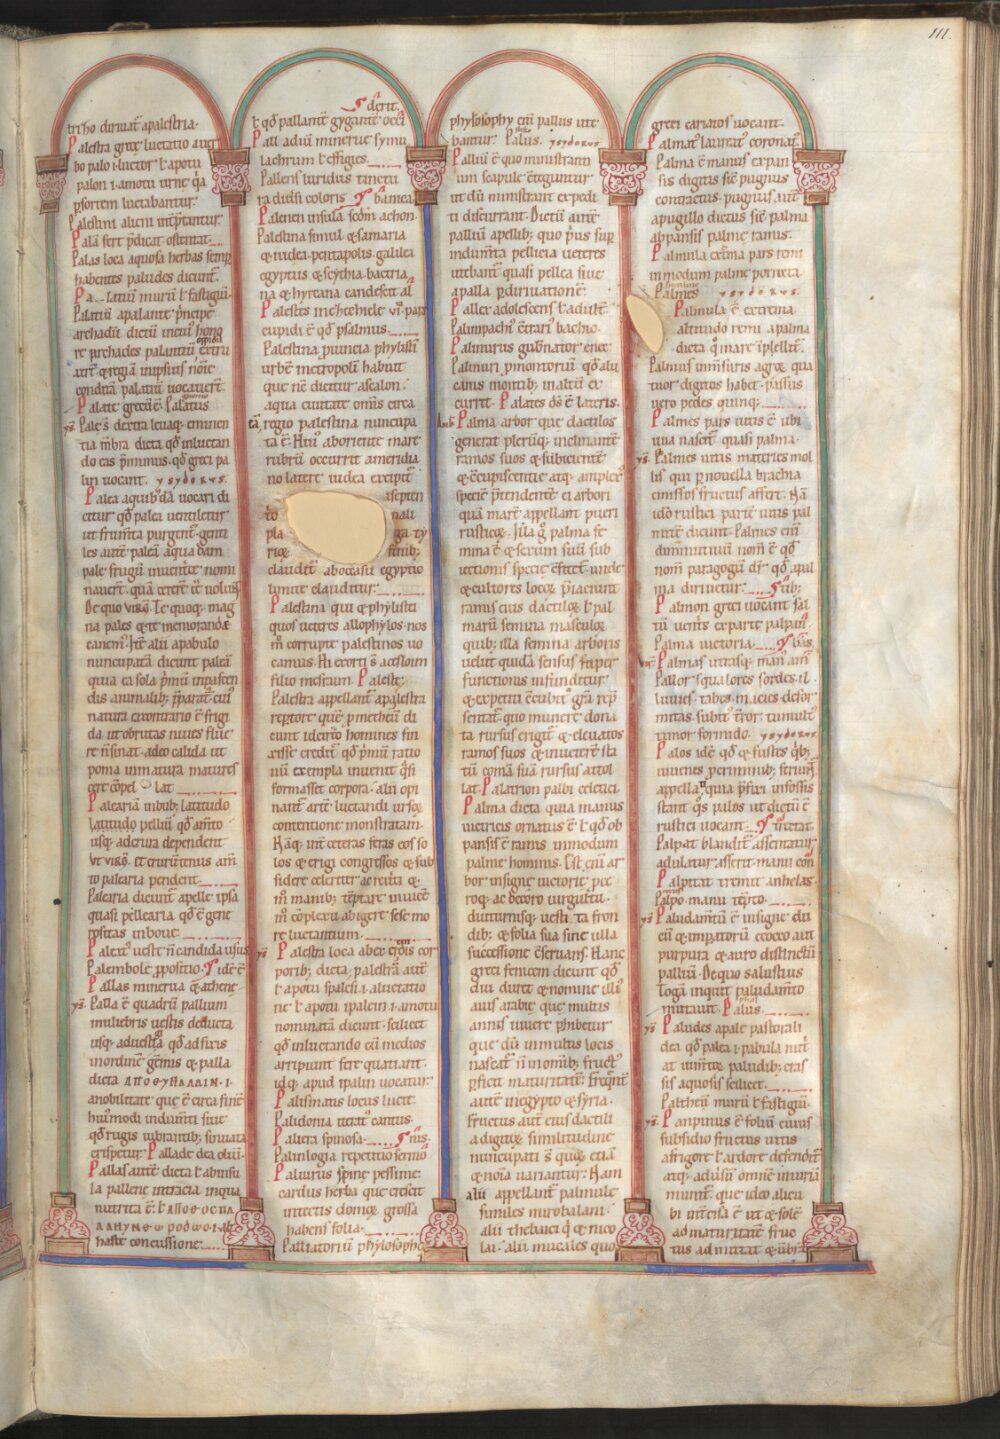 111.
tricho diriuat̄ a palestria.
Palestra grece luctatio aut
bo palo .i. luctor ł apotu
palon .i. amotu urne q̄a
ꝑ sortem luctabantur.
Palestini alieni int̄ꝑtantur.
Palā fert p̄dicat ostentat.
Palas loca aquosa herbas semꝑ
habentes paludes dicunt̄.
Palatiū murū ł fastigiū.
Palatiū apalante p̄ncipe
archadū dictū in cui' hono
re archades palantiū oppidū
et regiā in ipsius noīe
conditā palatiū uocauerūt.
Palate grecū ē. Palatus
Pale s̄ dextra leuaq; eminen
tia mēbra dicta qđ in luctan
do eas p̄mimus. qđ greci pa
lin uocant. ysydorus.
Palea a quib'dā uocari di
citur qđ palea uentiletur
ut frumēta purgent̄. genti
les autē paleā a quadam
pale frugū inuentrice nomi
nauert̄. quā cererē eē uolunt.
De quo virḡ. Te quoq; mag
na pales et te memorande
canem'. Hāc alii apabulo
nuncupatā dicunt paleā
quia ea sola p̄mū in pascen
dis animalib; p̄parat̄. cui'
natura e contrario ē frigi
da ut obrutas niues fluē
re n̄ sinat. adeo calida ut
poma inmatura matures
cere cōpellat
Paleariā in bub; latitudo
latitudo pelliū qđ a mēto
usq; ad crura dependent
Vt virḡ. Et crurū tenus am̄
to palearia pendent.
Palearia dicunt̄ apelle ipsa
quasi pellearia. qđ ē gene
rositas in boue.
Paleat' uest' n̄ candida usus
Palembole ꝓpositio. Idē ē
Pallas minerua et athene
Palla ē quadrū pallium
muliebris uestis deducta
usq; ad uestigia qđ ad firis
in ordinē gēmis et palla
dicta ΑΠΟΘΥΠΑΛΛΙΝ .i.
a nobilitate que ē circa finē
hui'modi indumti siue
qđ rugis uibrantib; sinuata
crispetur. Pallade dea oliui.
Pallas autē dicta ł ab insu
la pallene in tracia in qua
nutrita ē. ł ΑΠΟΘΟΥΠΑ
ΛΛΗΥΝΘΩΡΟΔΩΟ .i. ab
haste concussione.
ł qđ pallantē gygantē occi
derit.
Palladiū minerue symu
lachrum ł effigies.
Pallens luridus tinctu
ra diuersi coloris
Palenen insulā scdm̄ achon.
Palestina simul et samaria
et iudea pentapolis galilea
egyptus et scythia. bactria
na et hyrcana eandē sect̄ al
Palestes in ezechiele vi. pars
cupidi ē qđ psalmus.
Palestina ꝓuincia phylistii
urbē metropolī habuit
que nc̄ dicitur ascalon.
a qua ciuitate omīs circa
regio palestina nuncupa
ta ē. Hui' ab oriente mare
rubrū occurrit. a meridia
no latere iudea excipit̄
a septen
trionali
plaga ty
riorū finib;
claudit̄ ab occasu egyptio
limite clauditur.
Palestina qui et phylistei
quos ueteres allophylos. nos
m̄ corrupte palestinos uo
camus. Hi exorti s̄ a cesloim
filio mesraim. Paleste.
Palestra appellant̄ apalestra
reptore quē promethei di
cunt ideoq; homines fin
xisse credit̄ qđ p̄mū ratio
nū exempla inuenit q̄si
formasset corpora. alii opi
nant̄ artē luctandi ursoꝝ
contentione monstratam.
Nāq; int̄ ceteras feras eos so
los et erigi congressos et sub
sidere celeriter ac reuerti et
m̄ manib; tēptare inuicē
m̄ cōplexu abigere sese mo
re luctantium.
Palestra loca ab exercitiis cor
porib; dicta. palestrā autē
ł apotu spalesi .i. a luctatio
ne ł apotu ipalein .i. a motu
nominatā dicunt. scilicet
qđ in luctando eū medios
arripiunt fere quatiant.
idq; apud ipalin uocatur.
Palismatis locus lucte.
Palidonia iterat' cantus.
Paliera spinosa.
Palinlogia repetitio sermōnis.
Paliurus spine pessime
cardus herba que crescit
in tectis domoꝝ grossa
habens folia.
Palliatoriū phylosophi
phylosophy eni pallus ute
bantur. Palus. ysydorus
Palliū ē quo ministranti
um scapule cōteguntur
ut dū ministrant expedi
ti discurrant. Dictū autē
palliū a pellib; quo p̄us sup̄
indumta pellicia ueteres
utebant̄ quasi pellea siue
a palla ꝑ diriuationē.
Paller adolescens ł adult'.
Palimpachi' ēt rari' bacho.
Palinurus gub̄nator enee.
Palinuri ꝓmontoriū qđ alu
canis montib; in altū ex
currit. Palates ds̄ ē lateris.
Palma arbor que dactilos
generat plerūq; inclinantē
ramos suos et subicientē
et ccupiscentie atq; amplex'
speciē p̄tendentē ei arbori
quā marē appellant pueri
rusticoꝝ. Illa q̄ palma fe
mina ē et sexum suū sub
iectionis specie cōfitet̄. unde
et cultores locoꝝ p̄iaciunt
ramis eius dactiloꝝ ł pal
marū semina masculoꝝ.
quib; illa semina arboris
uelut quidā sensus furtiue
functionis infunditur
et expetiti cēcubit' gr̄a rep̄
sentat̄. quo munere dona
ta rursus erigit̄ et eleuatos
ramos suos et in ueterē sta
tū comā suā rursus attol
lat. Palatrion palbi celetici.
Palma dicta quia manus
uictricis ornatus ē ł qđ ob
pansis ē ramis in modum
palme hominis. Est eni ar
bor insigne uictorie. pce
roq; ac decoro uirgultu.
diuturnisq; uestita fron
dib; et folia sua sine ulla
successione cōseruans. Hanc
greci fenicem dicunt qđ
diu duret. et nomine illi'
auis arabie que multis
annis uiuere ꝑhibetur
que dū in multis locis
nascat̄ n̄ in omīb; fruct'
ꝑficit maturitatē. Frequent̄
autē in egypto et syria.
fructus autē eius dactili
a digitoꝝ similitudine
nuncupati s̄ quoꝝ etiā
et noīa uariantur. Nam
alii appellant̄ palmule
similes mirobalani.
alii thebaici q̄ et nico
lai. alii nucales quos
greci cariatos uocant.
Palmat' laureat' coronat'.
Palma ē manus expan
sis digitis sic̄ pugnus
contractus. pugnus aūt
apugillo dictus sic̄ palma
ab pansis palme ramis.
Palmula extrēma pars remi
in modum palme porrecta
Palmes ysydorus.
Palmula ē extrema
altitudo remi a palma
dicta q̄ mare īpellit̄.
Palmus in m̄suris agroꝝ qua
tuor digitos habet. passus
uero pedes quinq;.
Palmes pars uitis ē ubi
uua nascit̄ quasi palma.
Palmes uitis materies mol
lis qui ꝑ nouella brachia
emissos fructus affert. Nā
ido rustici partē uitis pal
mitē dicunt. Palmes eni
diminutiuū nom̄ ē qđ
nom̄ paragogū dr̄. qđ a pal
ma diriuetur.
Palmon greci uocant sal
tū uentis ex parte palpiti.
Palma uictoria.
Palmas utrasq; man' am̄
Pallor squalores sordes. il
luuies. tabes. macies. defor
mitas. subit' t̄ror. tumult'
timor formido. ysydorus.
Palos idē qđ et fustes q̄b;
iuuenes ꝑ criminib; feriunt̄
appellant̄ quia p̄fixi in fossis
stant q̄s palos ut dictū ē
rustici uocant.
Palpat blandit̄ assentatur
adulatur. asserit. manu con
Palpitat tremit anhelat.
Palpo. manu tēpto.
Paludamtū ē insigne du
cū et impatorū cocco aut
purpura et auro distinctū
palliū. De quo salustius
Togā inquit paludamto
mutauit. Palus.
Paludes a pale pastorali
dea qđ palea .i. pabula nut̄
at iumtoꝝ paludib; cras
sis aquosis scilicet.
Paltheū murū ł fastigiū.
Panpinus ē foliū cuius
subsidio fructus uitis
a frigore ł ardore defendit̄
atq; aduersū omnē iniuriā
munit̄. que ideo alicu
bi intercisa ē ut et solē
ad maturitatē fruc
tus admittat et umbrā